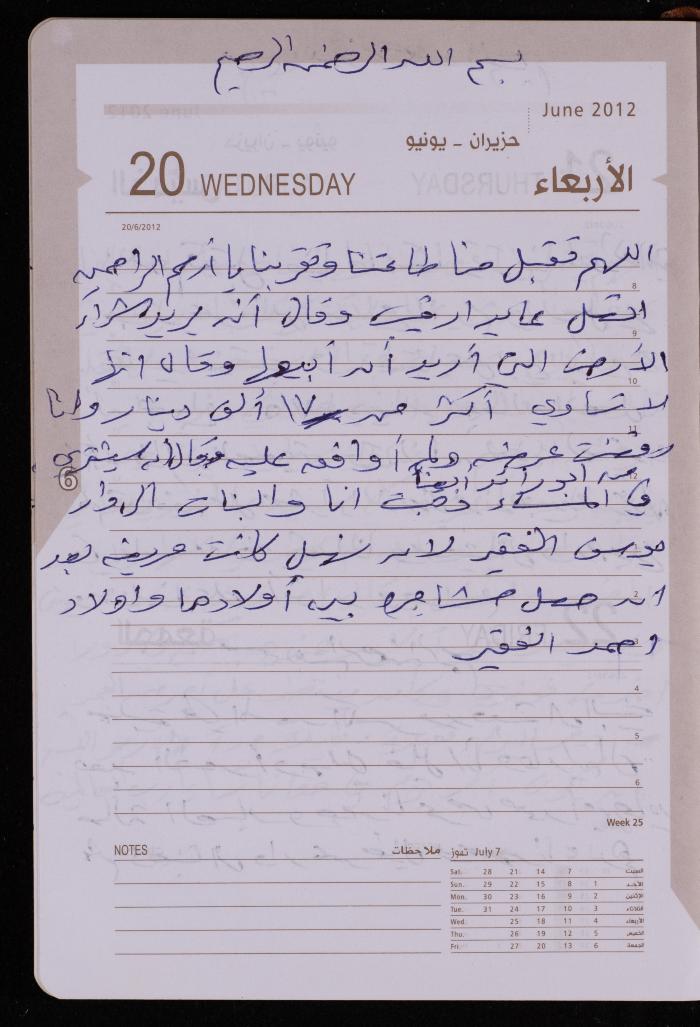 بسم الله الرحمن الرحيم
June 2012
حزيران - يونيو
20 WEDNESDAY
الأربعاء
20/6/2012
اللهم تقبل منا طاعتنا وتقربنا يا أرحم الراحمين
8
اتصل عايد وقال أنه يريد شراء
9
الأرض التي أريد أن أبيعها وقال انها
10
لا تساوي أكثر من ١٧ ألف دينار وانا
11
رفضت عرضه ولم أوافقه عليه وقال انه سيشتري
12
من أبو رائد أيضاً
في المساء ذهبت انا والبنات الى دار
موسى الفقير لان نهيل كانت مريضه بعد
ان حصل مشاجره بين أولادها واولاد
2
احمد الفقير
3
4
5
6
Week 25
NOTES ملاحظات
July 7 تموز
Sat. 28 21 14 7 السبت
Sun. 29 22 15 8 1 الأحد
Mon. 30 23 16 9 2 الإثنين
Tue. 31 24 17 10 3 الثلاثاء
Wed. 25 18 11 4 الأربعاء
Thu. 26 19 12 5 الخميس
Fri. 27 20 13 6 الجمعة
6